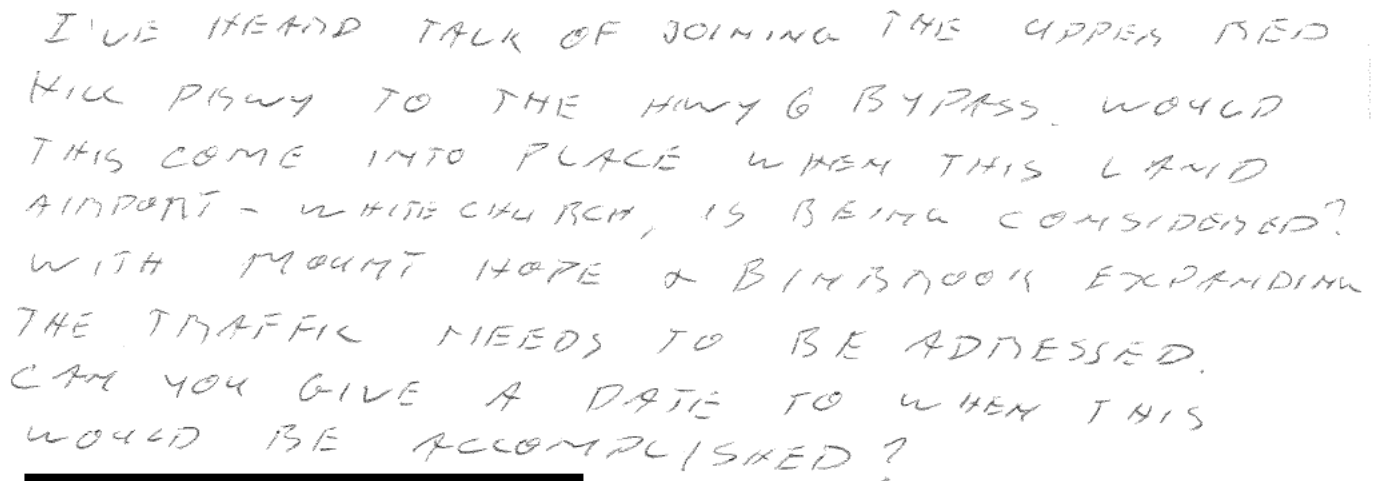 I'VE HEARD TALK OF JOINING THE UPPER RED
HILL PKWY TO THE HWY 6 BYPASS. WOULD
THIS COME INTO PLACE WHEN THIS LAND
AIRPORT - WHITECHURCH, IS BEING CONSIDERED?
WITH MOUNT HOPE & BINBROOK EXPANDING
THE TRAFFIC NEEDS TO BE ADRESSED.
CAN YOU GIVE A DATE TO WHEN THIS
WOULD BE ACCOMPLISHED?